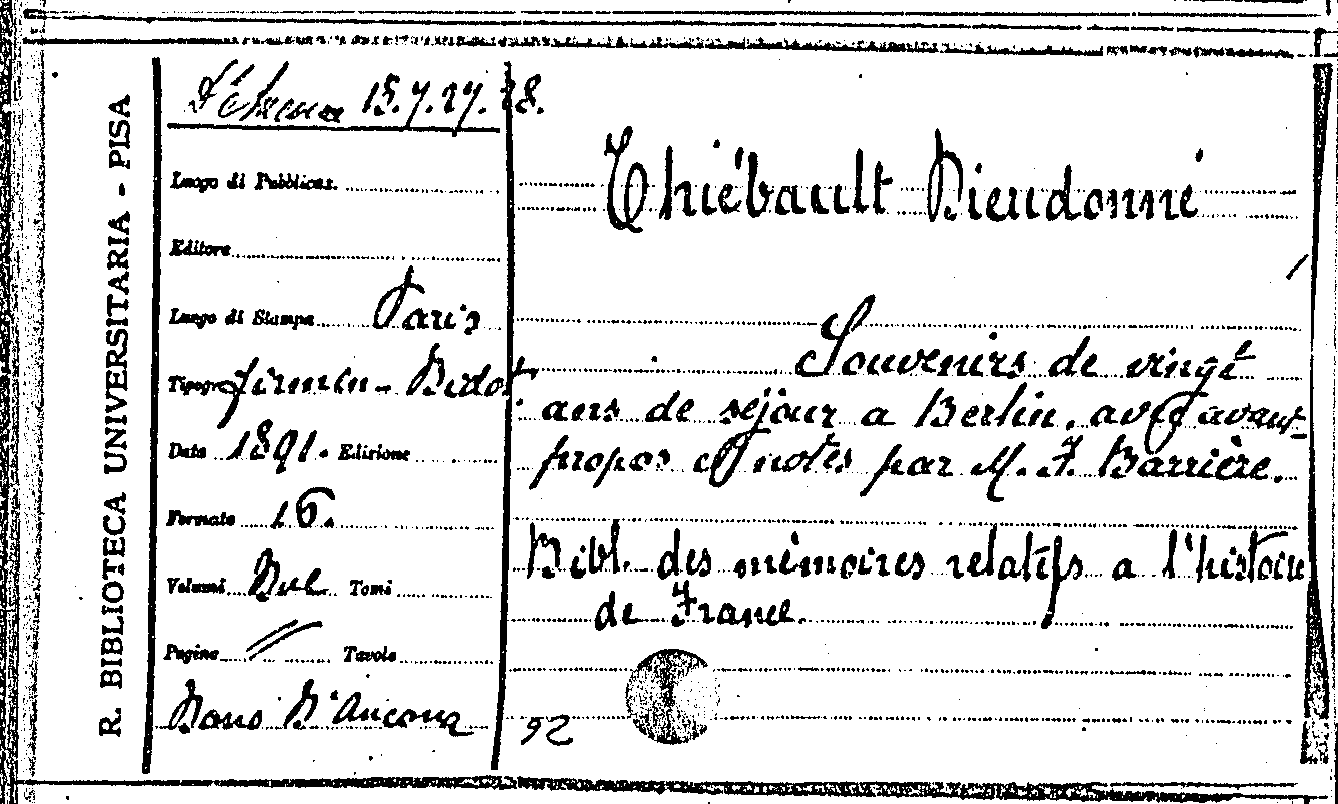 R. BIBLIOTECA UNIVERSITARIA - PISA
D'Ancona 15.7.27.28.
Luogo di Pubblicaz.
Editore
Luogo di Stampa Paris
Tipogr. Firmin-Didot.
Data 1891. Edizione
Formato 16.
Volumi Due Tomi
Pagine // Tavole
Dono D'Ancona
Thiébault Dieudonné
Souvenirs de vingt
ans de séjour a Berlin, avec avant-
propos et notes par M. F. Barrière.
Bibl. des mémoires relatifs a l'histoire
de France.
92